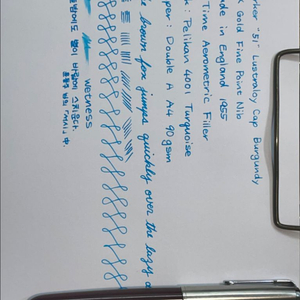 rker "51" Lustraloy Cap Burgundy
K Gold Fine Point Nib
ade in England 1985
Time Aerometric Filler
k: Pelikan 4001 Turquoise
per: Double A A4 90gsm
e brown fox jumps quickly over the lazy d
wetness
늘밤에도 별이 바람에 스치운다.
윤동주 님의 「서시」 中.